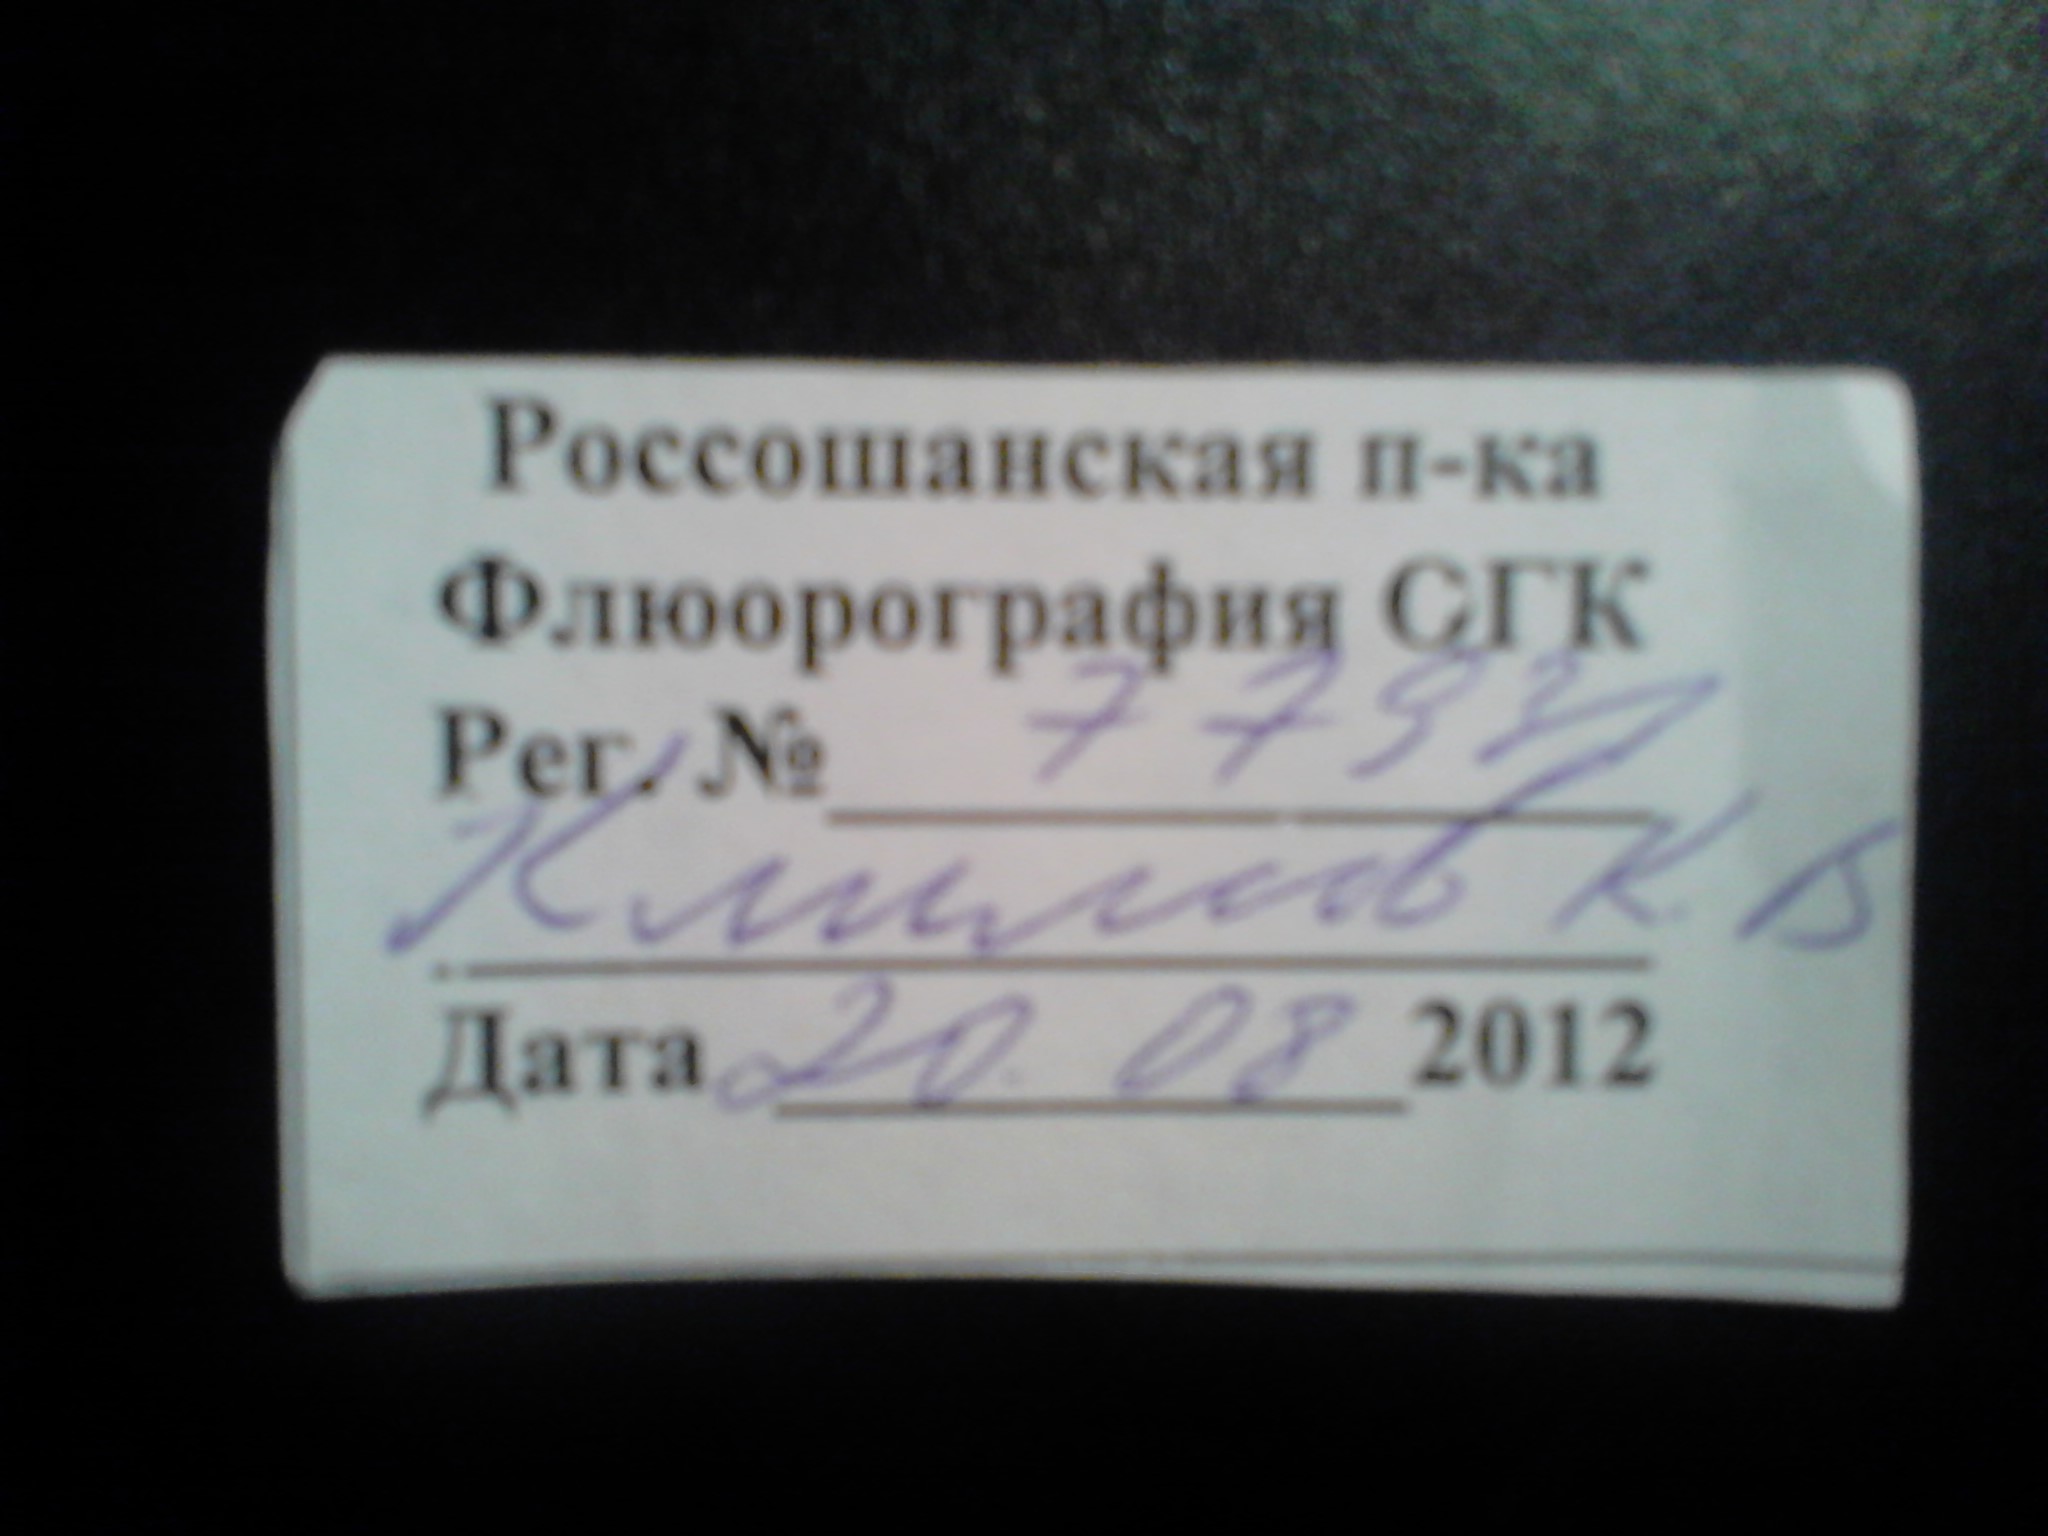 Россошанская п-ка
Флюорография СГК
Рег. № 779
К. В
Дата 20.08 2012